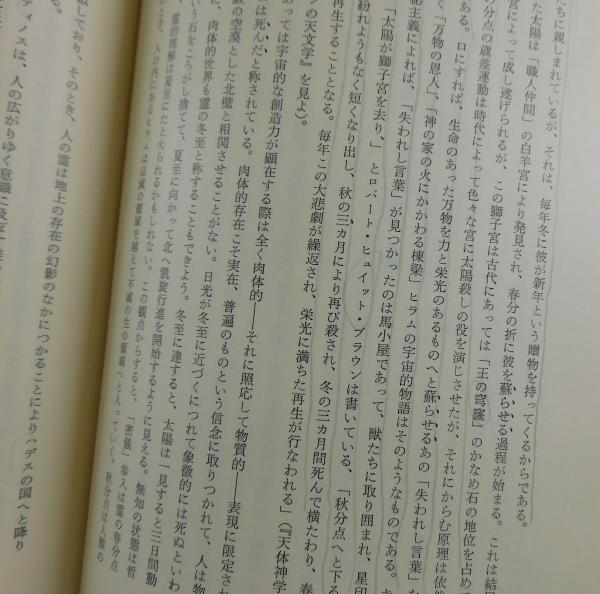 たちに親しまれているが、それは、毎年冬に彼が新年という贈物を持ってくるからである。
た太陽は「職人仲間」の白羊宮により発見され、春分の折に彼を蘇らせる過程が始まる。これは結局
宮によって成し遂げられるが、この獅子宮は古代にあっては「王の穹窿」のかなめ石の地位を占めて
の分点の歳差運動は時代によって色々な宮に太陽殺しの役を演じさせたが、それにからむ原理は依然
ある。口にすれば、生命のあった万物を力と栄光のあるものへと蘇らせるあの「失われし言葉」な
く「万物の恩人」、「神の家の火にかかわる棟梁」ヒラムの宇宙的物語はそのようなものである。
秘主義によれば、「失われし言葉」が見つかったのは馬小屋であって、獣たちに取り囲まれ、星印
「太陽が獅子宮を去り、」とロバート・ヒュイット・ブラウンは書いている、「秋分点へと下る
紛れようもなく短くなり出し、秋の三ヵ月により再び殺され、冬の三ヵ月間死んで横たわり、春
再生することとなる。毎年この大悲劇が繰返され、栄光に満ちた再生が行なわれる」(『天体神学
の天文学』を見よ)。
あっては宇宙的な創造力が顕在する際は全く肉体的――それに照応して物質的――表現に限定さ
は死んだと称されている。肉体的存在こそ実在、普遍のものという信念に取りつかれて、人は物
の空漠とした北壁と相関させることがない。日光が冬至に近づくにつれて象徴的には死ぬといわ
に、肉体的世界も霊の冬至と称することもできよう。冬至に達すると、太陽は一見すると三日間動
いう石をころがし捨てて、夏至に向かって北へ凱旋行進を開始するように見える。無知の状態は哲
霊的理解は夏至にたとえられるかもしれない。この観点からすると、「密儀」参入は霊の春分点
人の内にあるヒラムは必滅の領域を越えて不滅の生の領域へと入っていく。秋分点は人類の
しており、そのとき、人の霊は地上の存在の幻影のなかにつかることによりハデスの国へと降り
る。
ティノスは、人の広がりゆく意識に及ぼす